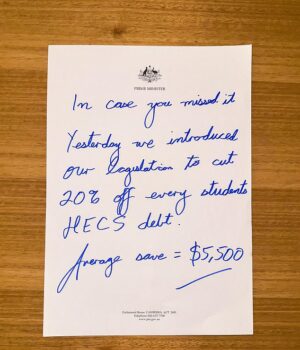 PRIME MINISTER
In case you missed it
Yesterday we introduced
our legislation to cut
20% off every students
HECS debt.
Average save = $5,500
Parliament House, CANBERRA ACT 2600
www.pm.gov.au